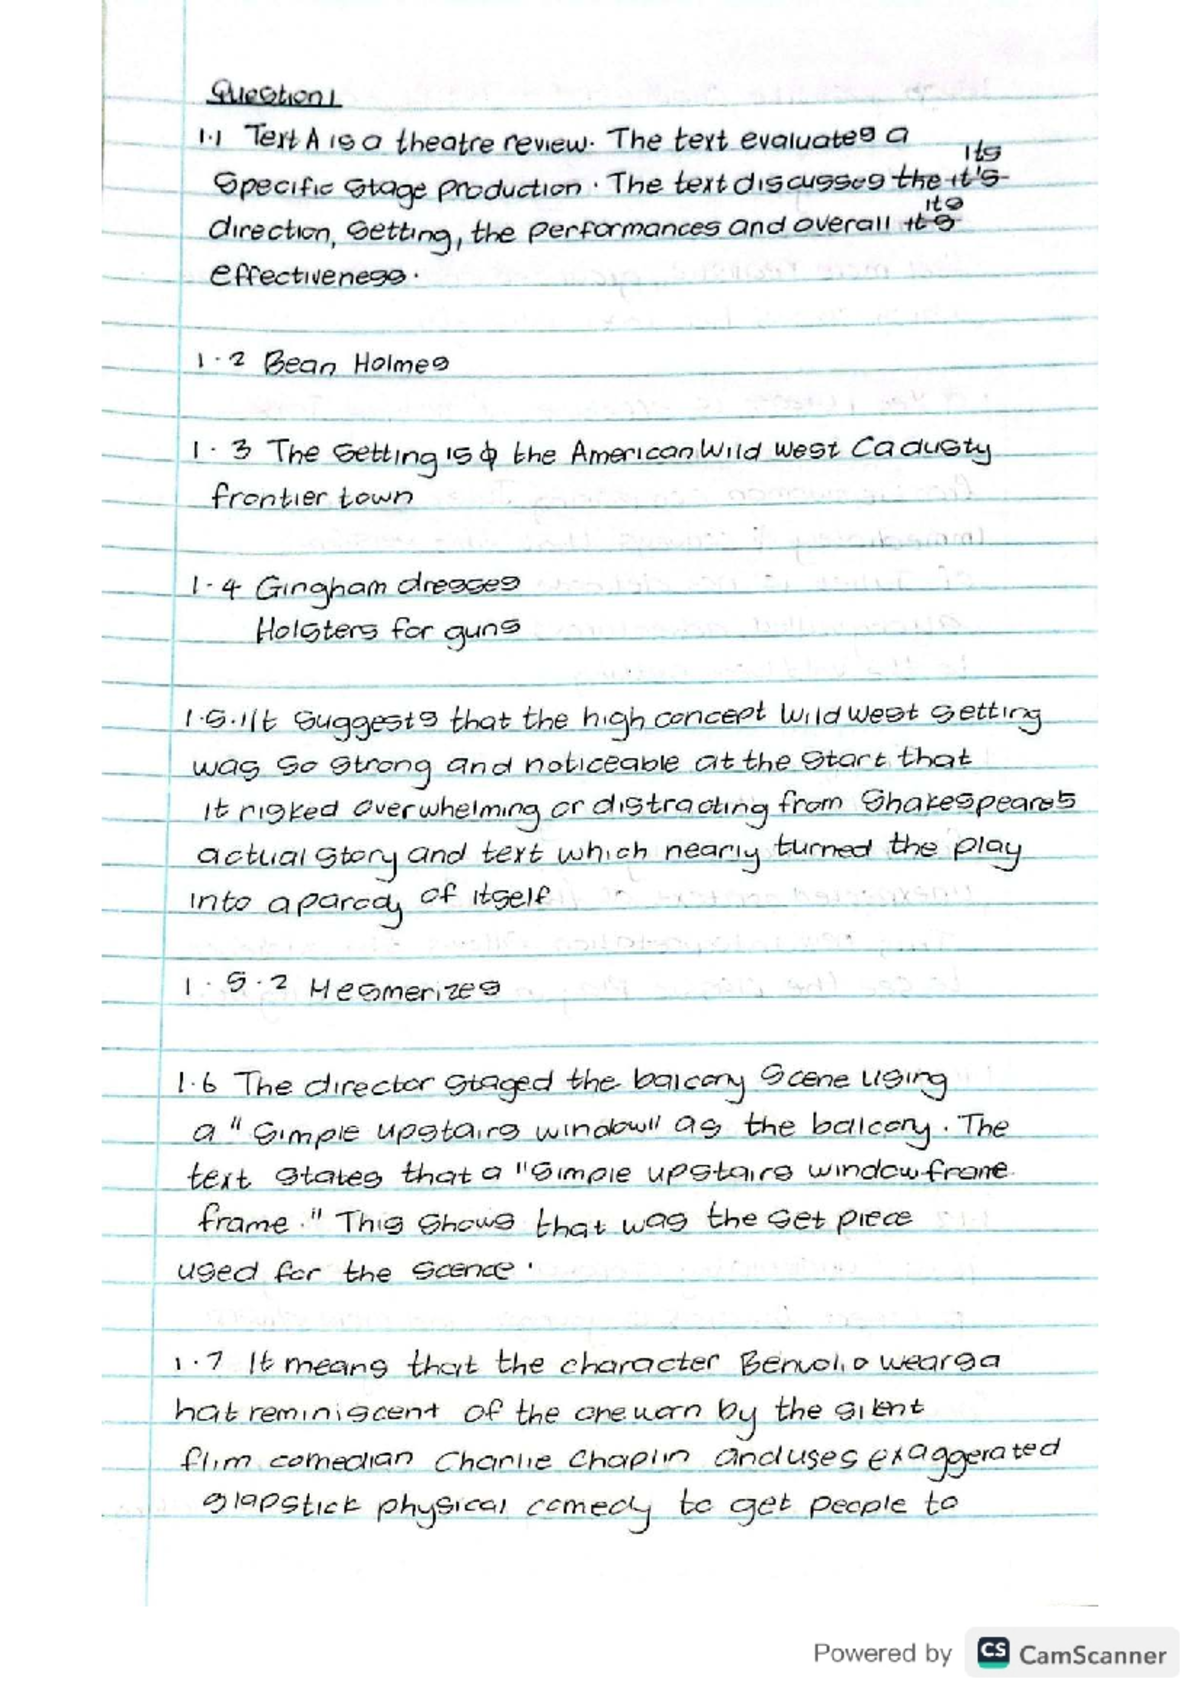 Question 1
1.1 Text A is a theatre review. The text evaluates a
Its
specific stage production. The text discusses the it's
its
direction, setting, the performances and overall its
effectiveness.
1.2 Bean Holmes
1.3 The setting is the American Wild West Ca dusty
frontier town
1.4 Gingham dresses
Holsters for guns
1.5.1 It suggests that the high concept Wild West setting
was so strong and noticeable at the start that
it risked overwhelming or distracting from Shakespeares
actual story and text which nearly turned the play
into a parody of itself
1.5.2 Mesmerizes
1.6 The director staged the balcony scene using
a "simple upstairs window" as the balcony. The
text states that a "simple upstairs window frame
frame." This shows that was the set piece
used for the scence.
1.7 It means that the character Benvolio wears a
hat reminiscent of the one worn by the silent
flim comedian Charlie Chaplin and uses exaggerated
slapstick physical comedy to get people to
Powered by CS CamScanner